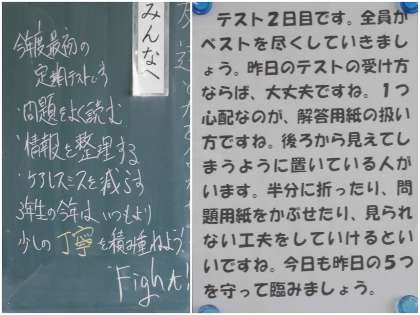 みんなへ
今年度最初の
定期テストです
・問題をよく読む
・情報を整理する
・ケアレスミスを減らす
3年生の今年は、いつもより
少しの丁寧を積み重ねよう!
Fight!
テスト2日目です。全員が
ベストを尽くしていきまし
ょう。昨日のテストの受け方
ならば、大丈夫ですね。1つ
心配なのが、解答用紙の扱い
方ですね。後ろから見えてし
まうように置いている人が
います。半分に折ったり、問
題用紙をかぶせたり、見られ
ない工夫をしていけるとい
いですね。今日も昨日の5つ
を守って臨みましょう。